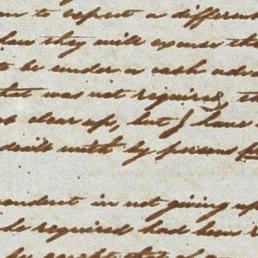 to expect a different
how they will expose the
be under a rash adv
that was not required, t
clear up, but I have
dealt with by persons
pendent in not giving up
be required had been